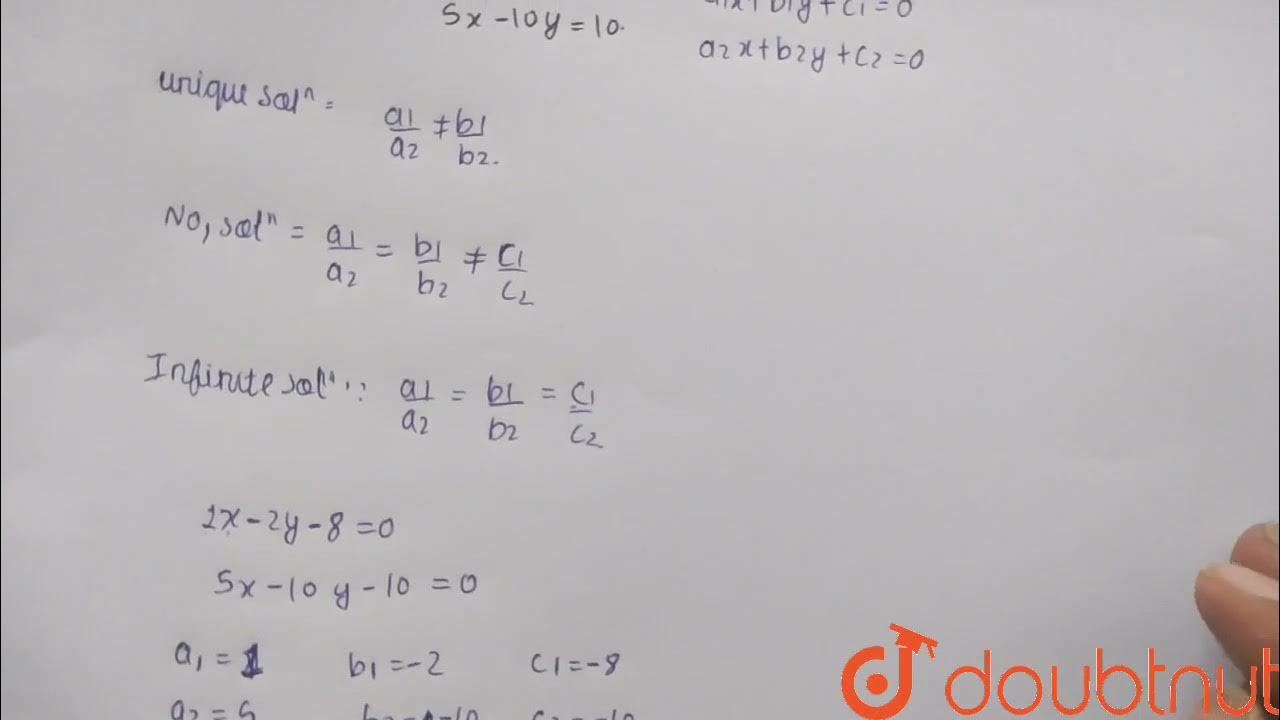 5x - 10y = 10.
a1x + b1y + c1 = 0
a2x + b2y + c2 = 0
unique solⁿ = a1/a2 ≠ b1/b2.
No, solⁿ = a1/a2 = b1/b2 ≠ c1/c2
Infinite solⁿ :: a1/a2 = b1/b2 = c1/c2
1x - 2y - 8 = 0
5x - 10 y - 10 = 0
a1 = 1 b1 = -2 c1 = -8
a2 = 5
doubtnut